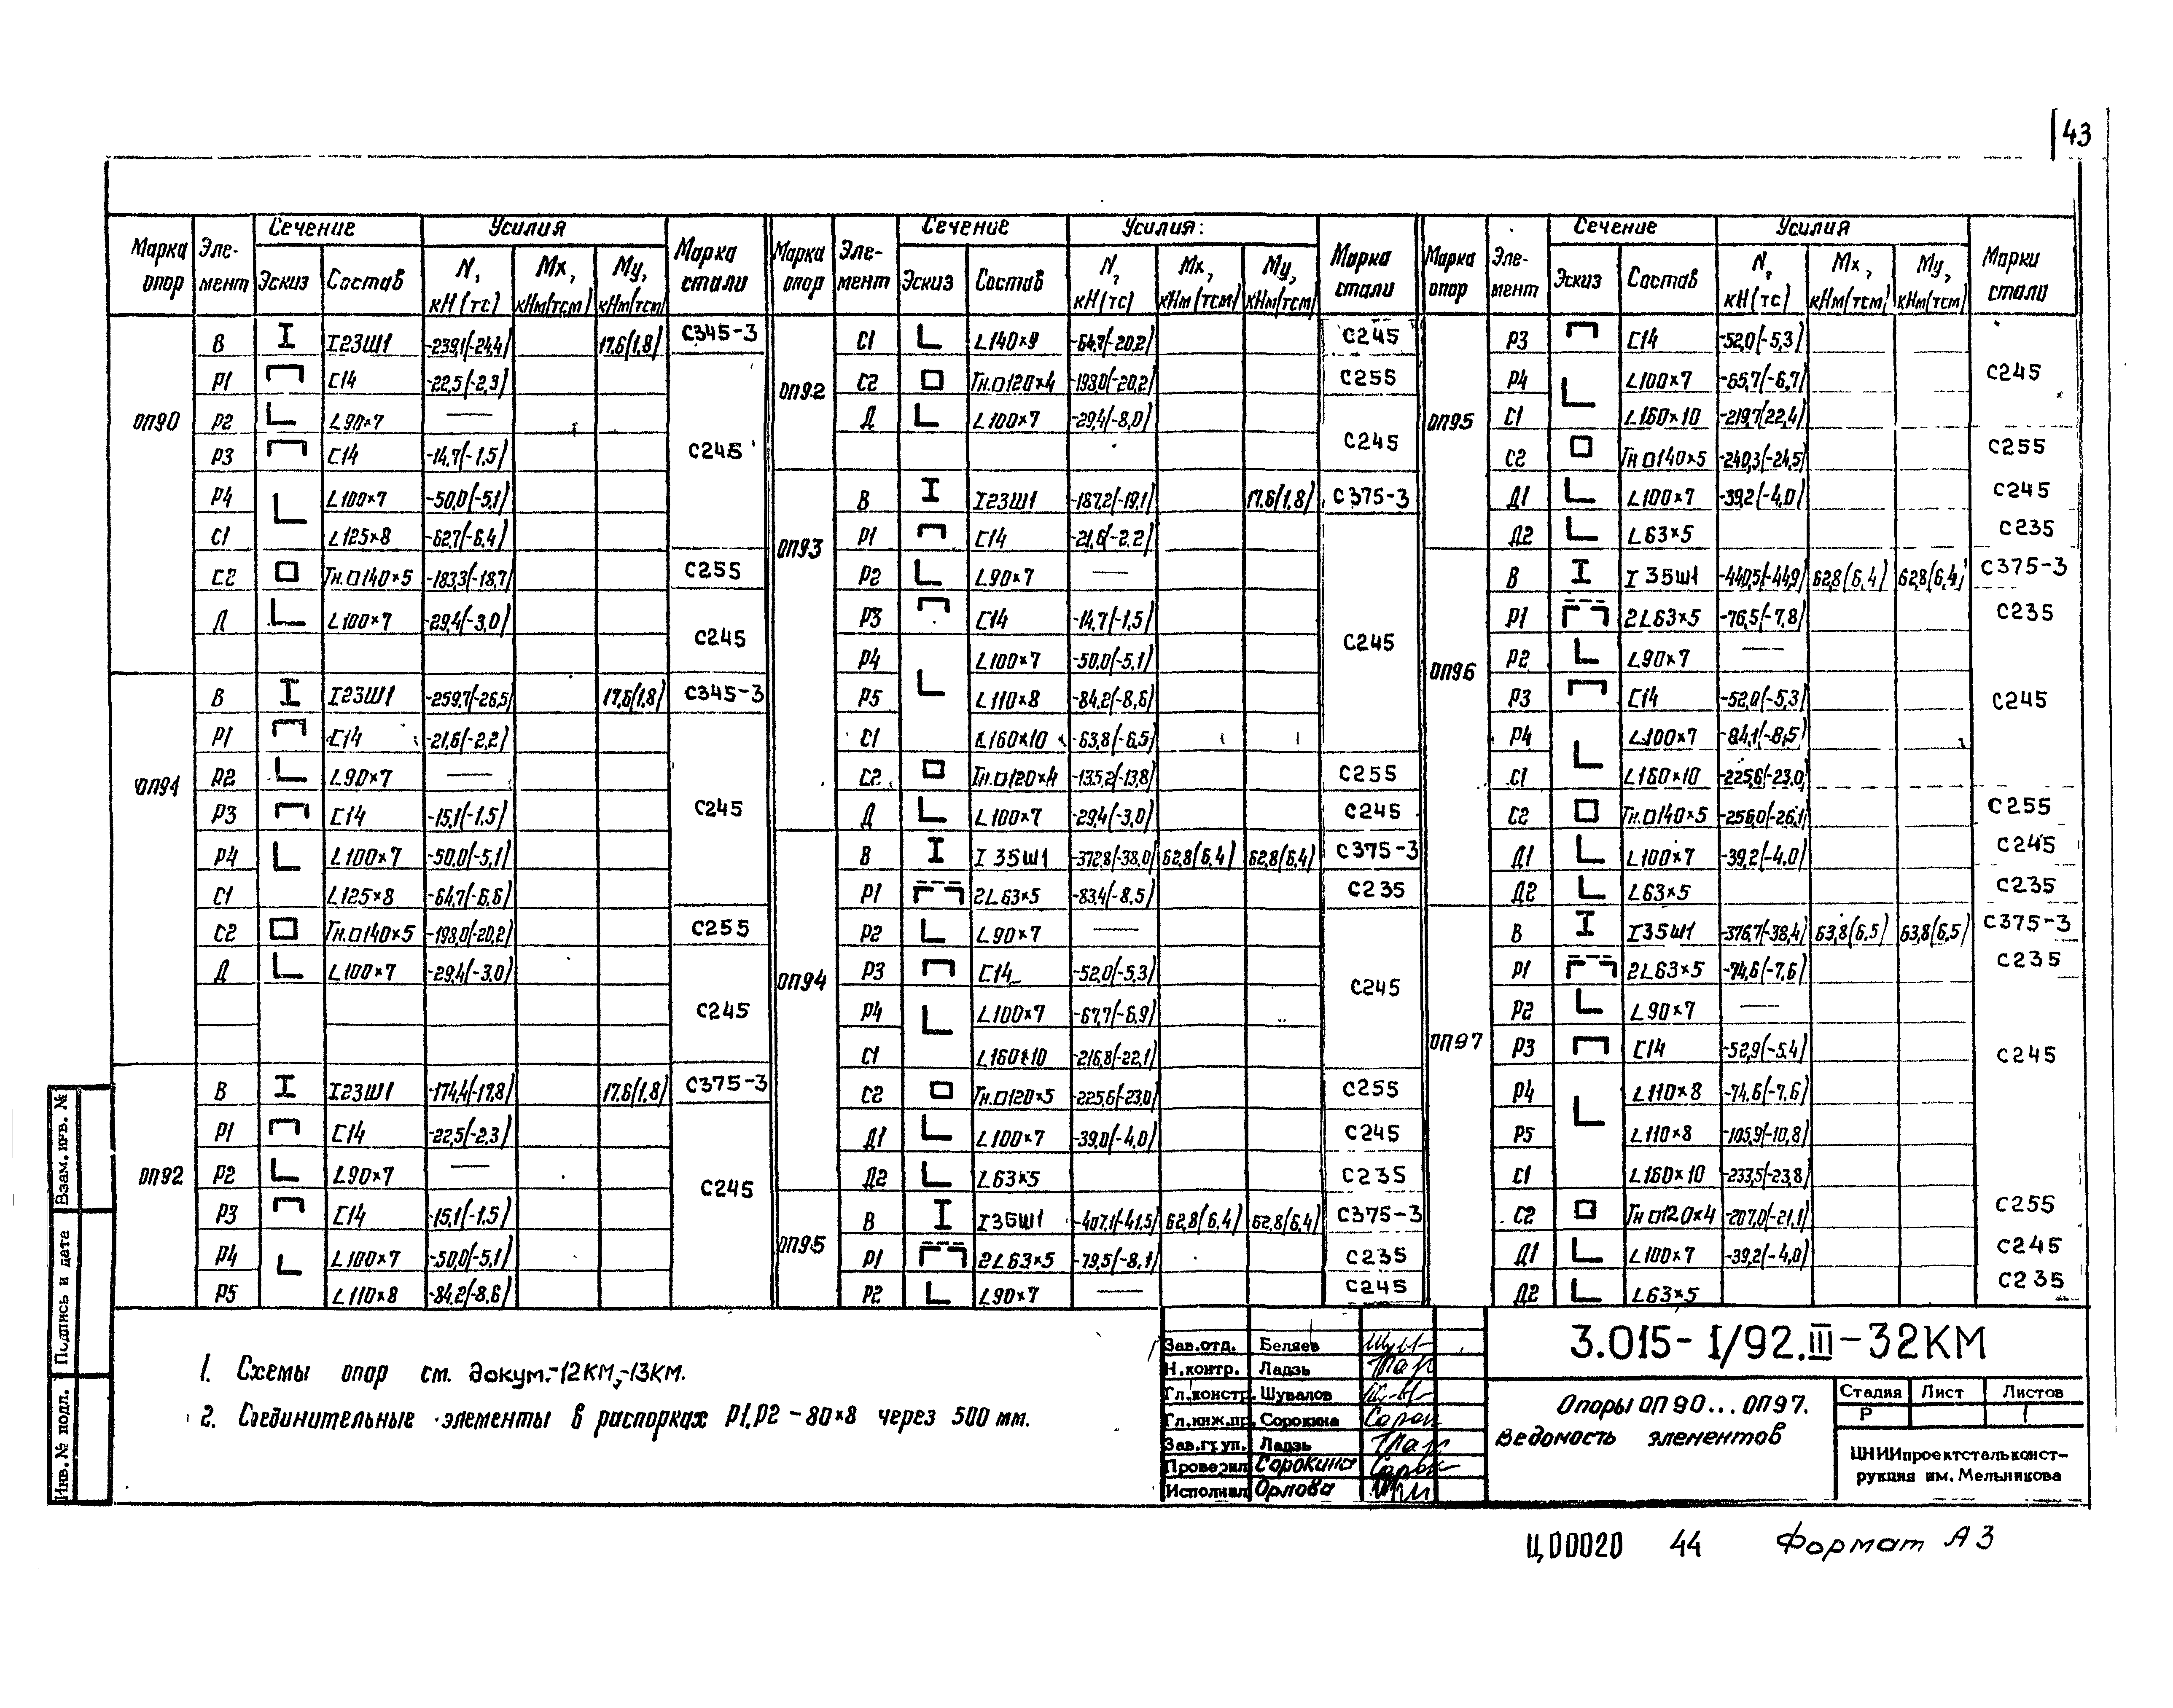 43
Марка опор Эле-мент Сечение Усилия Марка стали
Эскиз Состав N, кН(тс) Мх, кНм(тсм) Му, кНм(тсм)
ОП90
В I23Ш1 -239,1(-24,4) 17,6(1,8) С345-3
Р1 [14 -22,5(-2,3)
Р2 L90×7 —
Р3 [14 -14,7(-1,5) С245
Р4 L100×7 -50,0(-5,1)
С1 L125×8 -62,7(-6,4)
С2 Гн.□140×5 -183,3(-18,7) С255
Д L100×7 -29,4(-3,0) С245
ОП91
В I23Ш1 -259,7(-26,5) 17,6(1,8) С345-3
Р1 [14 -21,6(-2,2)
Р2 L90×7 —
Р3 [14 -15,1(-1,5) С245
Р4 L100×7 -50,0(-5,1)
С1 L125×8 -64,7(-6,6)
С2 Гн.□140×5 -198,0(-20,2) С255
Д L100×7 -29,4(-3,0) С245
ОП92
В I23Ш1 -174,4(-17,8) 17,6(1,8) С375-3
Р1 [14 -22,5(-2,3)
Р2 L90×7 —
Р3 [14 -15,1(-1,5) С245
Р4 L100×7 -50,0(-5,1)
Р5 L110×8 -84,2(-8,6)
Марка опор Эле-мент Сечение Усилия: Марка стали
Эскиз Состав N, кН(тс) Мх, кНм(тсм) Му, кНм(тсм)
ОП92
С1 L140×9 -64,7(-20,2) С245
С2 Гн.□120×4 -198,0(-20,2) С255
Д L100×7 -29,4(-8,0) С245
ОП93
В I23Ш1 -187,2(-19,1) 17,6(1,8) С375-3
Р1 [14 -21,6(-2,2)
Р2 L90×7 —
Р3 [14 -14,7(-1,5) С245
Р4 L100×7 -50,0(-5,1)
Р5 L110×8 -84,2(-8,6)
С1 L160×10 -63,8(-6,5)
С2 Гн.□120×4 -135,2(-13,8) С255
Д L100×7 -29,4(-3,0) С245
ОП94
В I 35Ш1 -372,8(-38,0) 62,8(6,4) 62,8(6,4) С375-3
Р1 2L63×5 -83,4(-8,5) С235
Р2 L90×7 —
Р3 [14 -52,0(-5,3) С245
Р4 L100×7 -67,7(-6,9)
С1 L160×10 -216,8(-22,1)
С2 Гн.□120×5 -225,6(-23,0) С255
Д1 L100×7 -39,0(-4,0) С245
Д2 L63×5 С235
ОП95
В I35Ш1 -407,1(-41,5) 62,8(6,4) 62,8(6,4) С375-3
Р1 2L63×5 -79,5(-8,1) С235
Р2 L90×7 — С245
Марка опор Эле-мент Сечение Усилия Марки стали
Эскиз Состав N, кН(тс) Мх, кНм(тсм) Му, кНм(тсм)
ОП95
Р3 [14 -52,0(-5,3)
Р4 L100×7 -65,7(-6,7) С245
С1 L160×10 -219,7(22,4)
С2 Гн□140×5 -240,3(-24,5) С255
Д1 L100×7 -39,2(-4,0) С245
Д2 L63×5 С235
ОП96
В I 35Ш1 -440,5(-44,9) 62,8(6,4) 62,8(6,4) С375-3
Р1 2L63×5 -76,5(-7,8) С235
Р2 L90×7 —
Р3 [14 -52,0(-5,3) С245
Р4 L100×7 -84,1(-8,5)
С1 L160×10 -225,6(-23,0)
С2 Гн.□140×5 -256,0(-26,1) С255
Д1 L100×7 -39,2(-4,0) С245
Д2 L63×5 С235
ОП97
В I35Ш1 -376,7(-38,4) 63,8(6,5) 63,8(6,5) С375-3
Р1 2L63×5 -74,6(-7,6) С235
Р2 L90×7 —
Р3 [14 -52,9(-5,4) С245
Р4 L110×8 -74,6(-7,6)
Р5 L110×8 -105,9(-10,8)
С1 L160×10 -233,5(-23,8)
С2 Гн□120×4 -207,0(-21,1) С255
Д1 L100×7 -39,2(-4,0) С245
Д2 L63×5 С235
1. Схемы опор см. докум.-12КМ,-13КМ.
2. Соединительные элементы в распорках Р1,Р2 – 80×8 через 500 мм.
Взам. инв. №
Подпись и дата
Инв. № подл.
Зав.отд. Беляев
Н.контр. Ладзь
Гл.констр. Шувалов
Гл.инж.пр. Сорокина
Зав.груп. Ладзь
Проверил Сорокина
Исполнил Орлова
3.015-1/92.III-32КМ
Опоры ОП90...ОП97.
Ведомость элементов
Стадия Лист Листов
Р 1
ЦНИИпроектстальконст-
рукция им. Мельникова
Ц00020 44 Формат А3